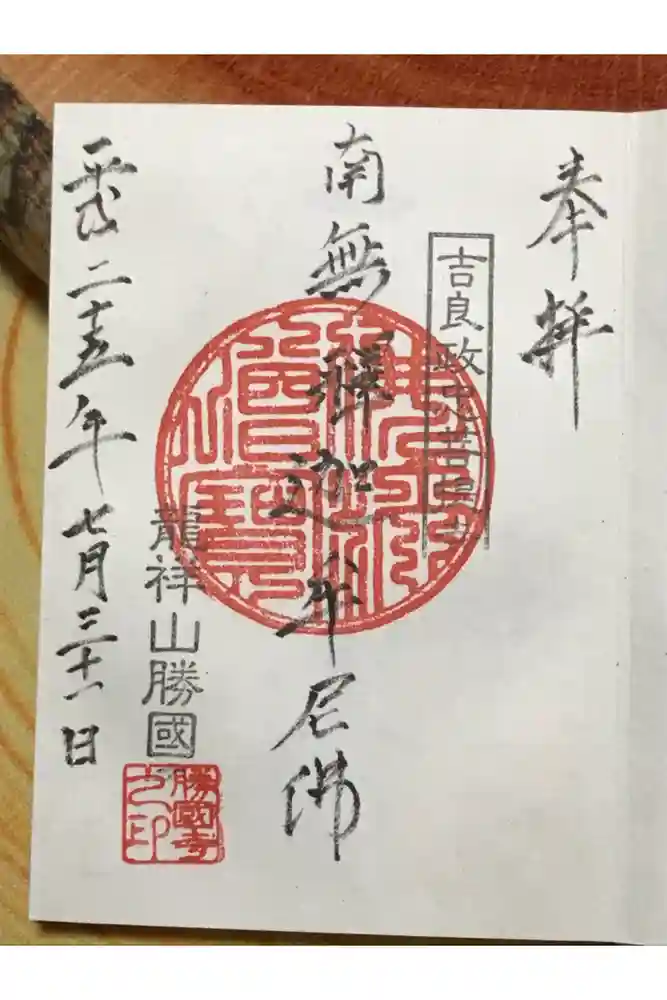 奉拝
吉良政忠菩提寺
南無釋迦牟尼佛
龍祥山勝國
勝國寺之印
平成二十五年七月三十一日